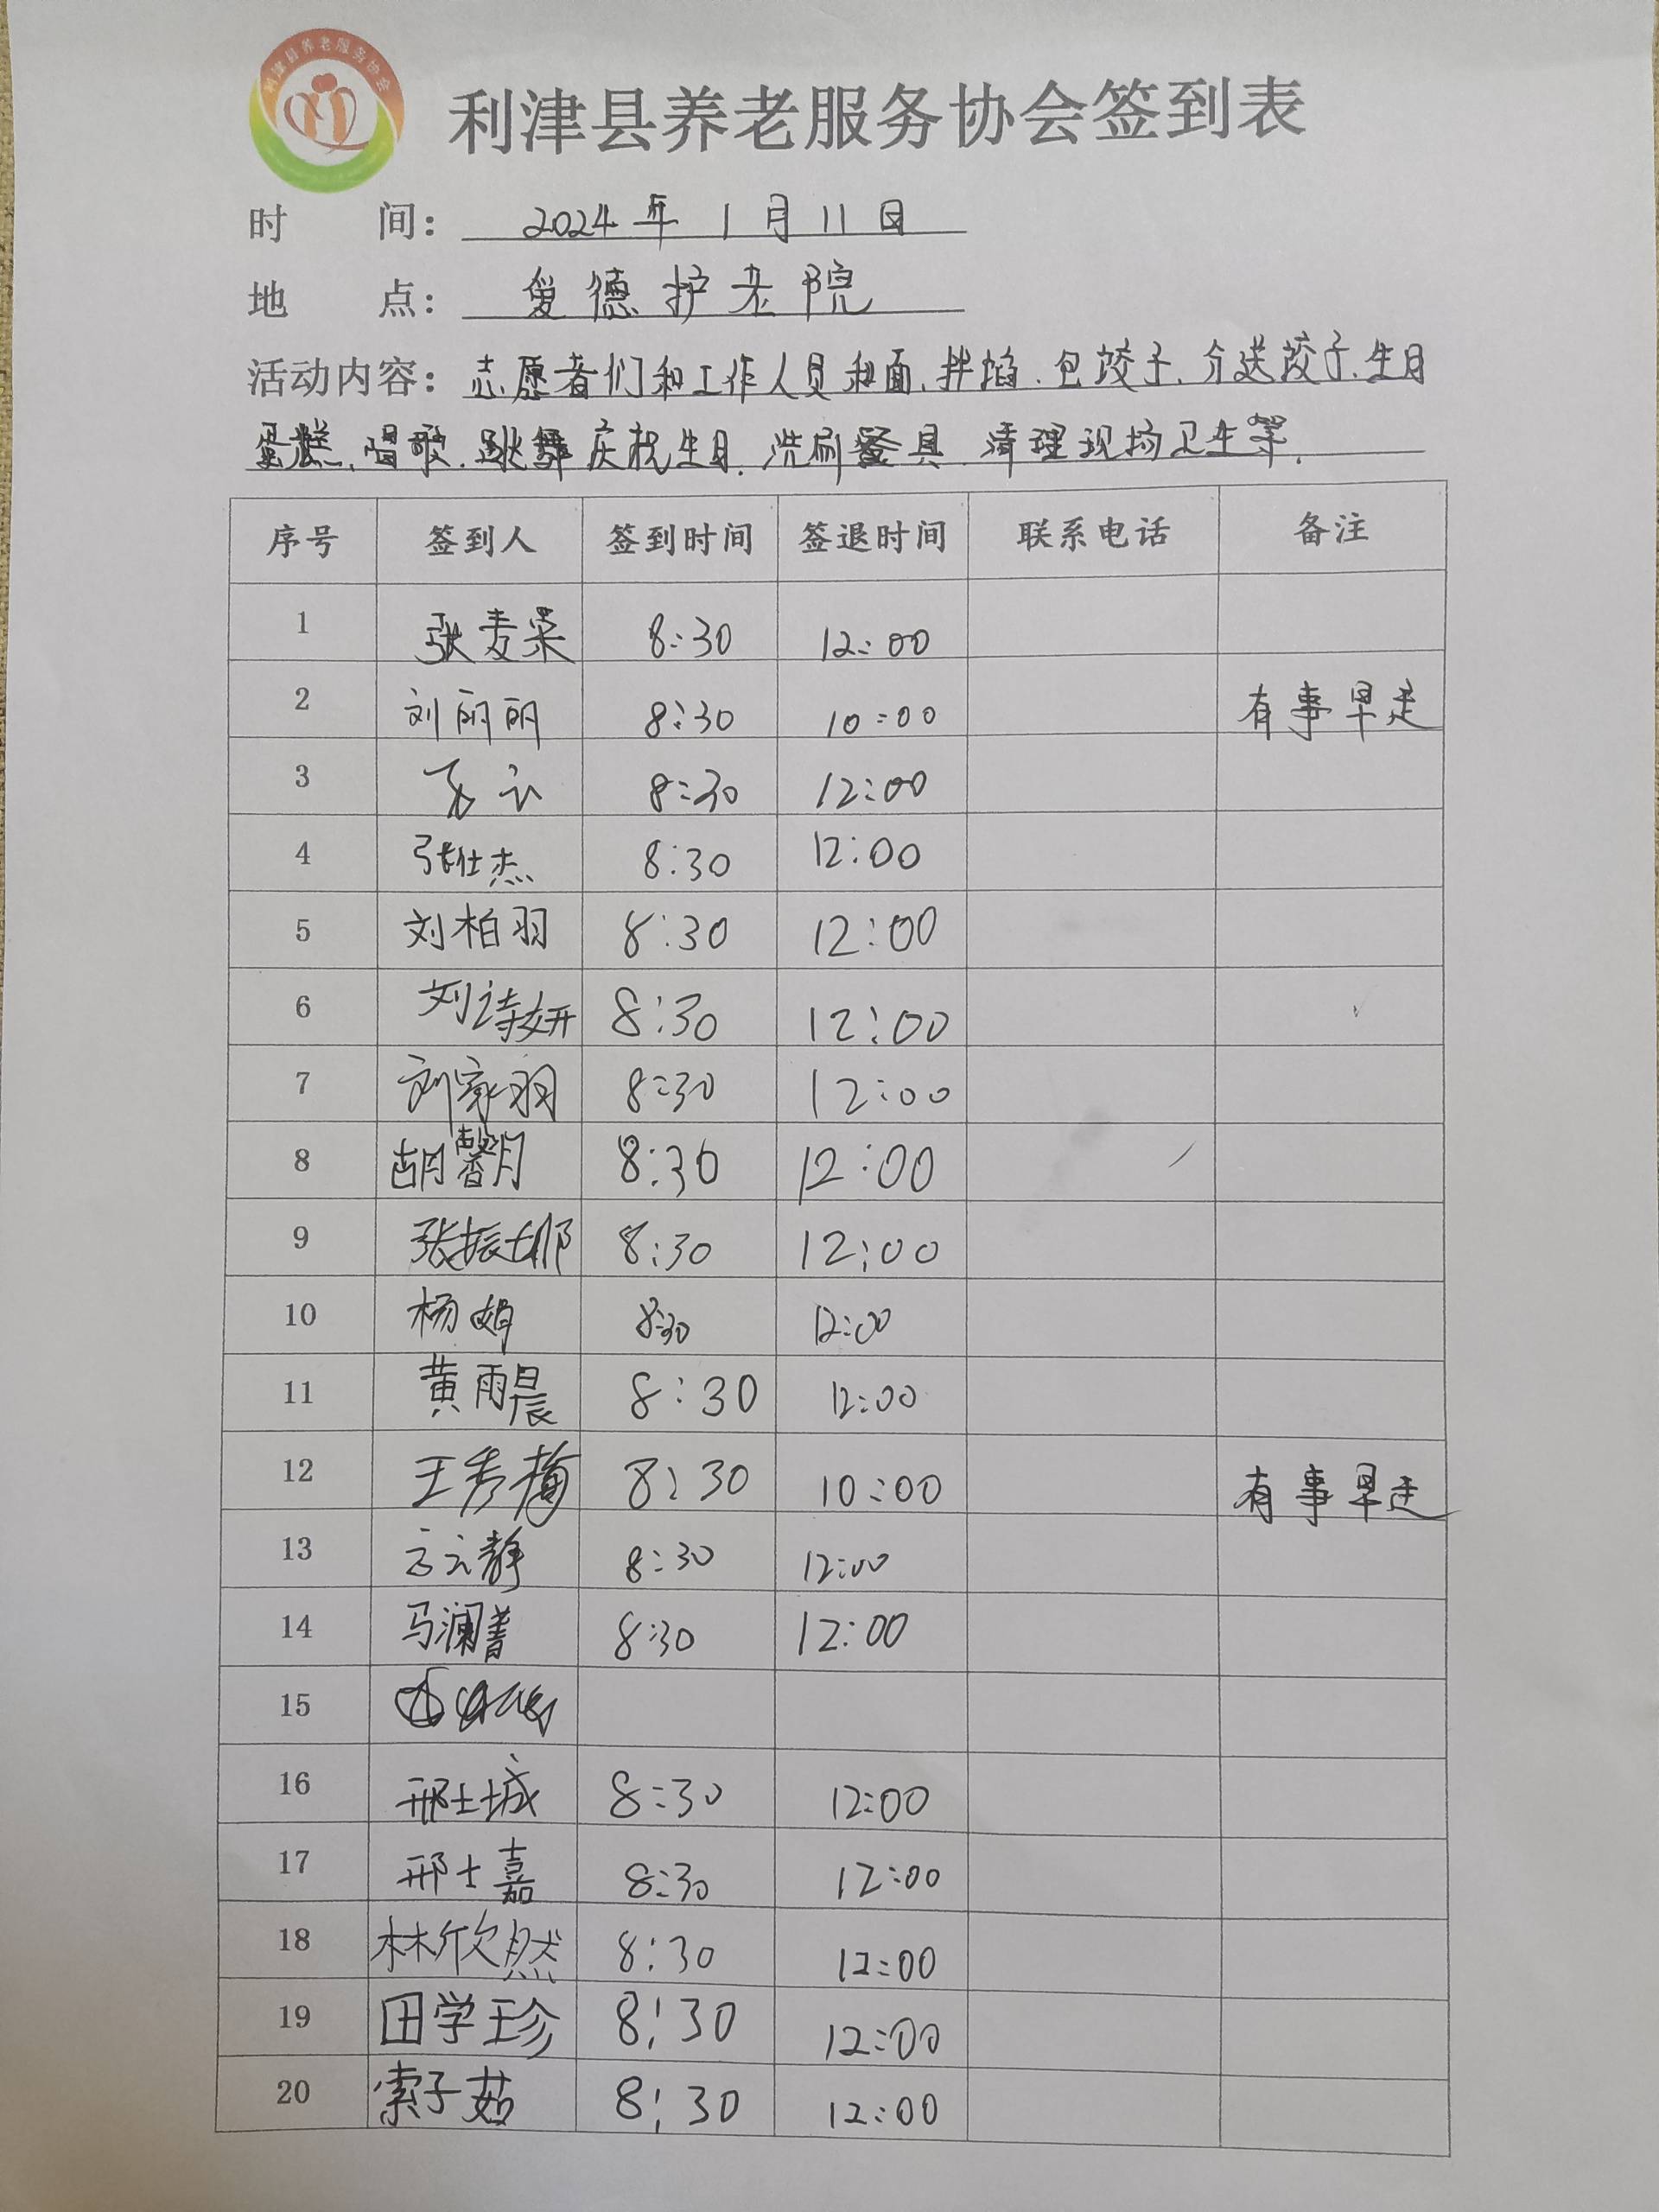 利津县养老服务协会
利津县养老服务协会签到表
时 间: 2024年1月11日
地 点: 爱德护老院
活动内容: 志愿者们和工作人员和面、拌馅、包饺子、分送饺子、生日
蛋糕、唱歌、跳舞庆祝生日、洗刷餐具、清理现场卫生等。
序号 签到人 签到时间 签退时间 联系电话 备注
1 张麦菜 8:30 12:00
2 刘丽丽 8:30 10:00 有事早走
3 8:30 12:00
4 张仕杰 8:30 12:00
5 刘柏羽 8:30 12:00
6 刘诗妍 8:30 12:00
7 刘家羽 8:30 12:00
8 胡馨月 8:30 12:00
9 张振娜 8:30 12:00
10 杨娟 8:30 12:00
11 黄雨晨 8:30 12:00
12 王秀梅 8:30 10:00 有事早走
13 方云静 8:30 12:00
14 马澜菁 8:30 12:00
15
16 邢士城 8:30 12:00
17 邢士嘉 8:30 12:00
18 林欣然 8:30 12:00
19 田学珍 8:30 12:00
20 索子茹 8:30 12:00